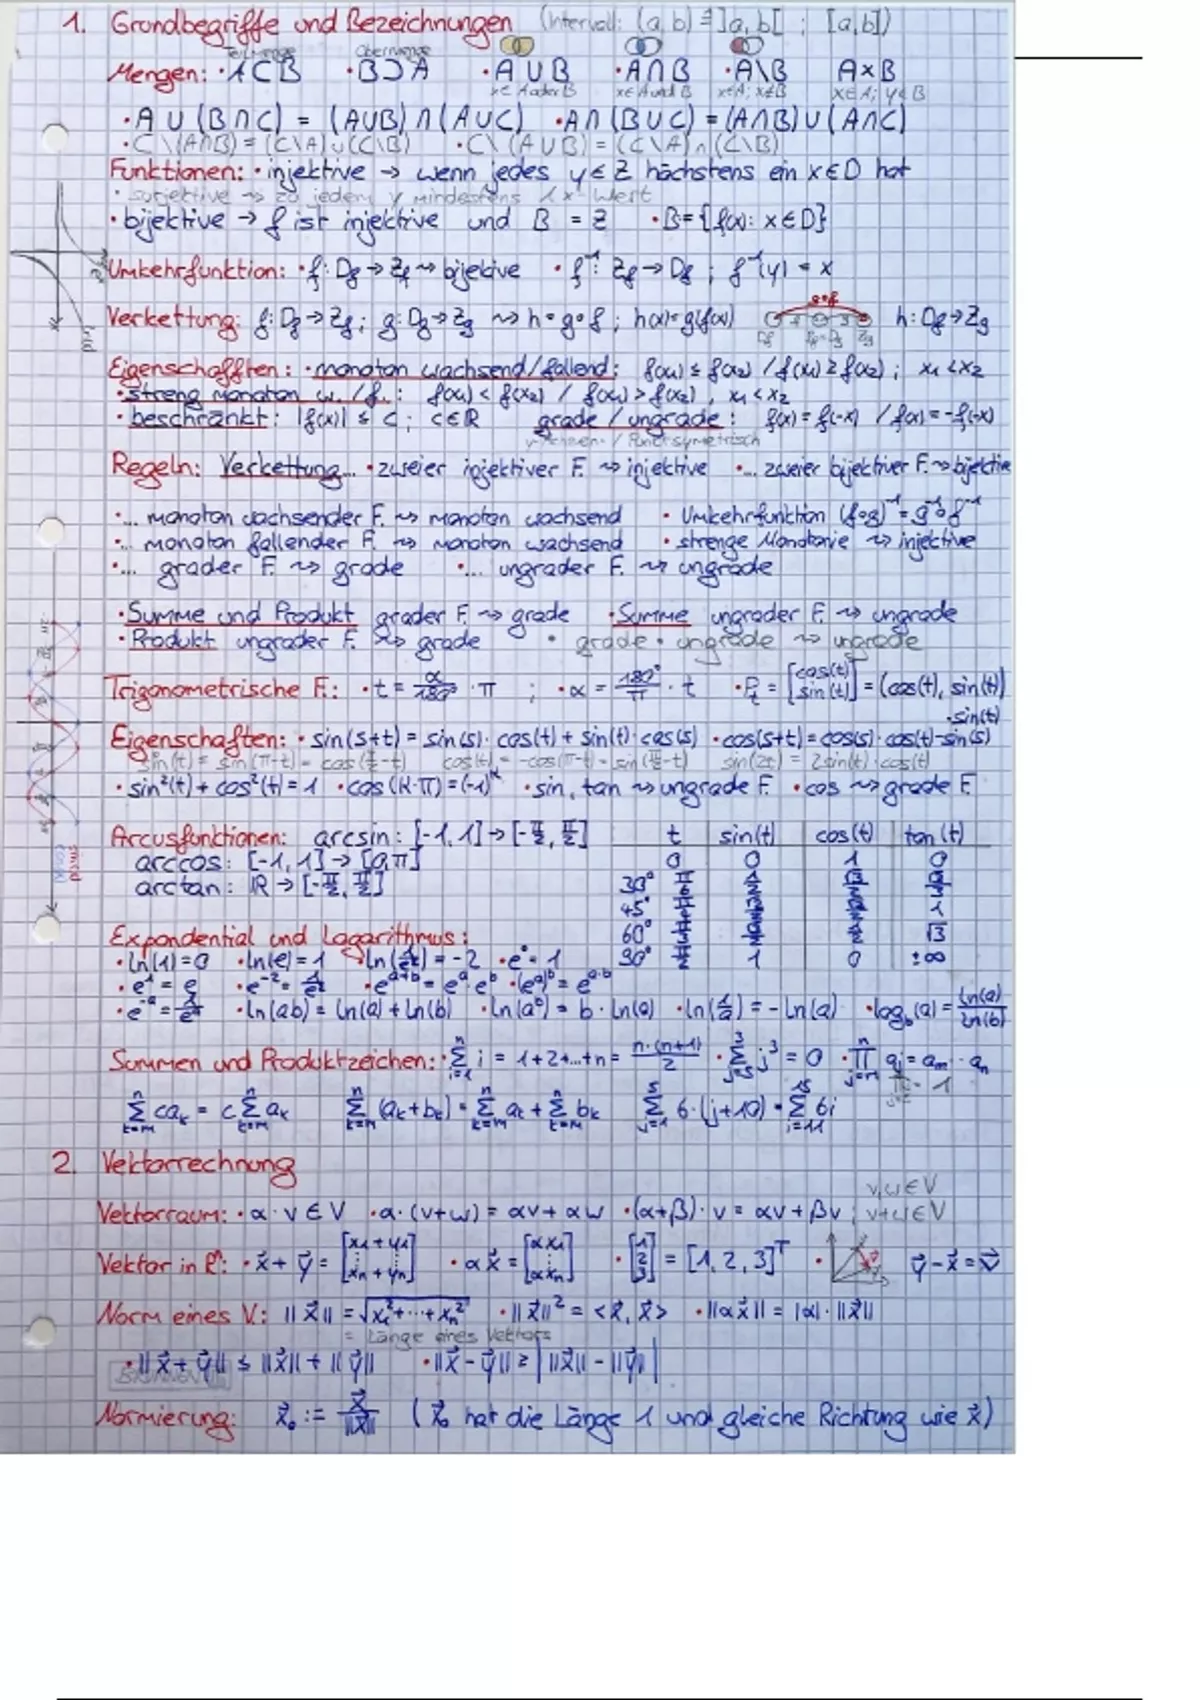 1. Grundbegriffe und Bezeichnungen (Intervall: (a,b) ≙ ]a,b[ ; [a,b])
Teilmenge Obermenge
Mengen: · A ⊂ B · B ⊃ A · A ∪ B · A ∩ B · A \ B A × B
x∈A oder B x∈A und B x∈A; x∉B x∈A; y∈B
· A ∪ (B ∩ C) = (A∪B) ∩ (A∪C) · A ∩ (B ∪ C) = (A∩B) ∪ (A∩C)
· C \ (A∩B) = (C\A) ∪ (C\B) · C \ (A∪B) = (C\A) ∩ (C\B)
Funktionen: · injektive → wenn jedes y ∈ Z höchstens ein x ∈ D hat
· surjektive → zu jedem y mindestens 1 x-Wert
· bijektive → f ist injektive und B = Z · B = {f(x): x ∈ D}
Umkehrfunktion: · f: Df → Zf ⇝ bijektive · f⁻¹: Zf → Df ; f⁻¹(y) = x
Verkettung: f: Df → Zf ; g: Dg → Zg ⇝ h = g∘f ; h(x) = g(f(x)) g∘f h: Df → Zg
Eigenschafften: · monoton wachsend/fallend: f(x₁) ≤ f(x₂) / f(x₁) ≥ f(x₂) ; x₁ < x₂
· streng monoton w. /f. : f(x₁) < f(x₂) / f(x₁) > f(x₂) , x₁ < x₂
· beschränkt: |f(x)| ≤ c ; c ∈ ℝ grade / ungrade : f(x) = f(-x) / f(x) = -f(-x)
y-Achsen- / Punktsymetrisch
Regeln: Verkettung... · zweier injektiver F. ⇝ injektive · ... zweier bijektiver F. ⇝ bijektive
· ... monoton wachsender F. ⇝ monoton wachsend · Umkehrfunktion (f∘g)⁻¹ = g⁻¹∘f⁻¹
· ... monoton fallender F. ⇝ monoton wachsend · strenge Monotonie ⇝ injektive
· ... grader F. ⇝ grade · ... ungrader F. ⇝ ungrade
· Summe und Produkt grader F. ⇝ grade · Summe ungrader F. ⇝ ungrade
· Produkt ungrader F. ⇝ grade · grade · ungrade ⇝ ungrade
Trigonometrische F.: · t = α/180° · π ; · α = 180°/π · t · Pt = [cos(t) sin(t)] = (cos(t), sin(t))
Eigenschaften: · sin(s+t) = sin(s)·cos(t) + sin(t)·cos(s) · cos(s+t) = cos(s)·cos(t) - sin(s) · sin(t)
sin(t) = sin(π-t) = cos(π/2-t) cos(t) = -cos(π-t) = sin(π/2-t) sin(2t) = 2sin(t)·cos(t)
· sin²(t) + cos²(t) = 1 · cos(k·π) = (-1)ᵏ · sin, tan ⇝ ungrade F. · cos ⇝ grade F.
Arcusfunktionen: arcsin: [-1,1] → [-π/2, π/2] t sin(t) cos(t) tan(t)
arccos: [-1,1] → [0,π] 0 0 1 0
arctan: ℝ → [-π/2, π/2] 30°
45° 1
Expondential und Logarithmus: 60° √3
· ln(1) = 0 · ln(e) = 1 · ln(1/e²) = -2 · e⁰ = 1 90° 1 0 ±∞
· e¹ = e · e⁻² = 1/e² · eᵃ⁺ᵇ = eᵃ·eᵇ · (eᵃ)ᵇ = eᵃ·ᵇ
· e⁻ᵃ = 1/eᵃ · ln(ab) = ln(a) + ln(b) · ln(aᵇ) = b · ln(a) · ln(1/a) = -ln(a) · log_b(a) = ln(a)/ln(b)
Summen und Produktzeichen: · Σ_{i=1}^{n} i = 1+2+...+n = n·(n+1)/2 · Σ_{j=5}^{3} j³ = 0 · Π_{j=m}^{n} aj = am · an
Σ_{k=m}^{n} cak = c Σ_{k=m}^{n} ak Σ_{k=m}^{n} (ak+bk) = Σ_{k=m}^{n} ak + Σ_{k=m}^{n} bk Σ_{j=1}^{5} 6·(j+10) = Σ_{i=11}^{15} 6i
2. Vektorrechnung
v,w ∈ V
Vectorraum: · α·v ∈ V · α·(v+w) = αv + αw · (α+β)·v = αv + βv ; v+w ∈ V
Vektor in ℝⁿ: · x⃗ + y⃗ = [x₁+y₁ ⋮ xn+yn] · αx⃗ = [αx₁ ⋮ αxn] · [1 2 3] = [1, 2, 3]ᵀ · y⃗ - x⃗ = v⃗
Norm eines V.: ||x⃗|| = √(x₁²+···+xn²) · ||x⃗||² = <x⃗, x⃗> · ||αx⃗|| = |α|·||x⃗||
= Länge eines Vektors
· ||x⃗ + y⃗|| ≤ ||x⃗|| + ||y⃗|| · ||x⃗ - y⃗|| ≥ | ||x⃗|| - ||y⃗|| |
Normierung: x⃗₀ := x⃗/||x⃗|| ( x⃗₀ hat die Länge 1 und gleiche Richtung wie x⃗)